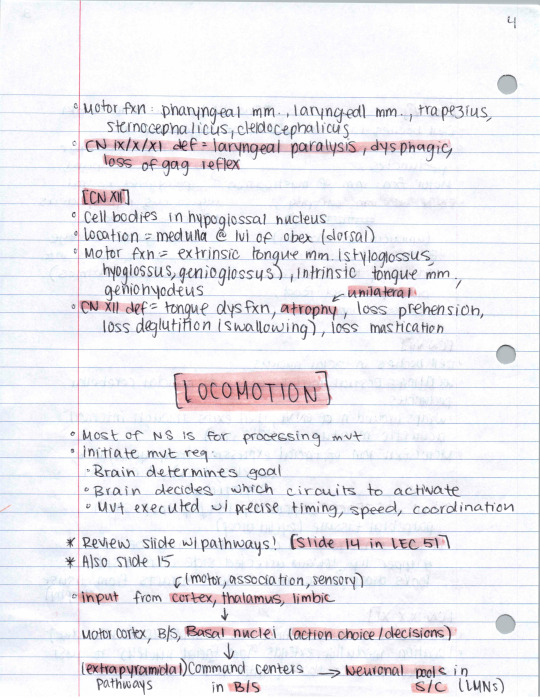 4
◦ Motor fxn: pharyngeal mm., laryngeal mm., trapezius,
sternocephalicus, cleidocephalicus
◦ CN IX/X/XI def = laryngeal paralysis, dysphagic,
loss of gag reflex
[CN XII]
◦ Cell bodies in hypoglossal nucleus
◦ Location = medulla @ lvl of obex (dorsal)
◦ Motor fxn = extrinsic tongue mm. (styloglossus,
hyoglossus, genioglossus), intrinsic tongue mm,
geniohyodeus
unilateral
◦ CN XII def = tongue dysfxn, atrophy, loss prehension,
loss deglutition (swallowing), loss mastication
[LOCOMOTION]
◦ Most of NS is for processing mvt
◦ Initiate mvt req:
◦ Brain determines goal
◦ Brain decides which circuits to activate
◦ Mvt executed w/ precise timing, speed, coordination
* Review slide w/ pathways! [Slide 14 in LEC 51]
* Also slide 15
(motor, association, sensory)
◦ Input from cortex, thalamus, limbic
↓
Motor cortex, B/S, Basal nuclei (action choice/decisions)
↓
(extrapyramidal) Command centers → Neuronal pools in
pathways in B/S S/C (LMNs)